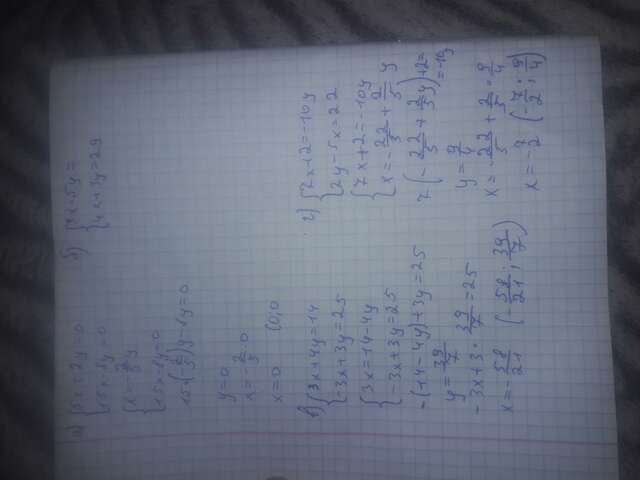 а) { 3x+2y=0
15x-8y=0
{ x=-2/3y
15x-8y=0
15·(-2/3)y-8y=0
y=0
x=-2/3·0
x=0 (0;0)
б)
4x+3y=29
в) { 3x+4y=14
-3x+3y=25
{ 3x=14-4y
-3x+3y=25
-(14-4y)+3y=25
y=39/7
-3x+3·39/7=25
x=-58/21 (-58/21; 39/7)
г) { 7x+2=-10y
2y-5x=22
{ 7x+2=-10y
x=-22/5+2/5y
7(-22/5+2/5y)+2=-10y
y=9/4
x=-22/5+2/5·9/4
x=-7/2 (-7/2; 9/4)